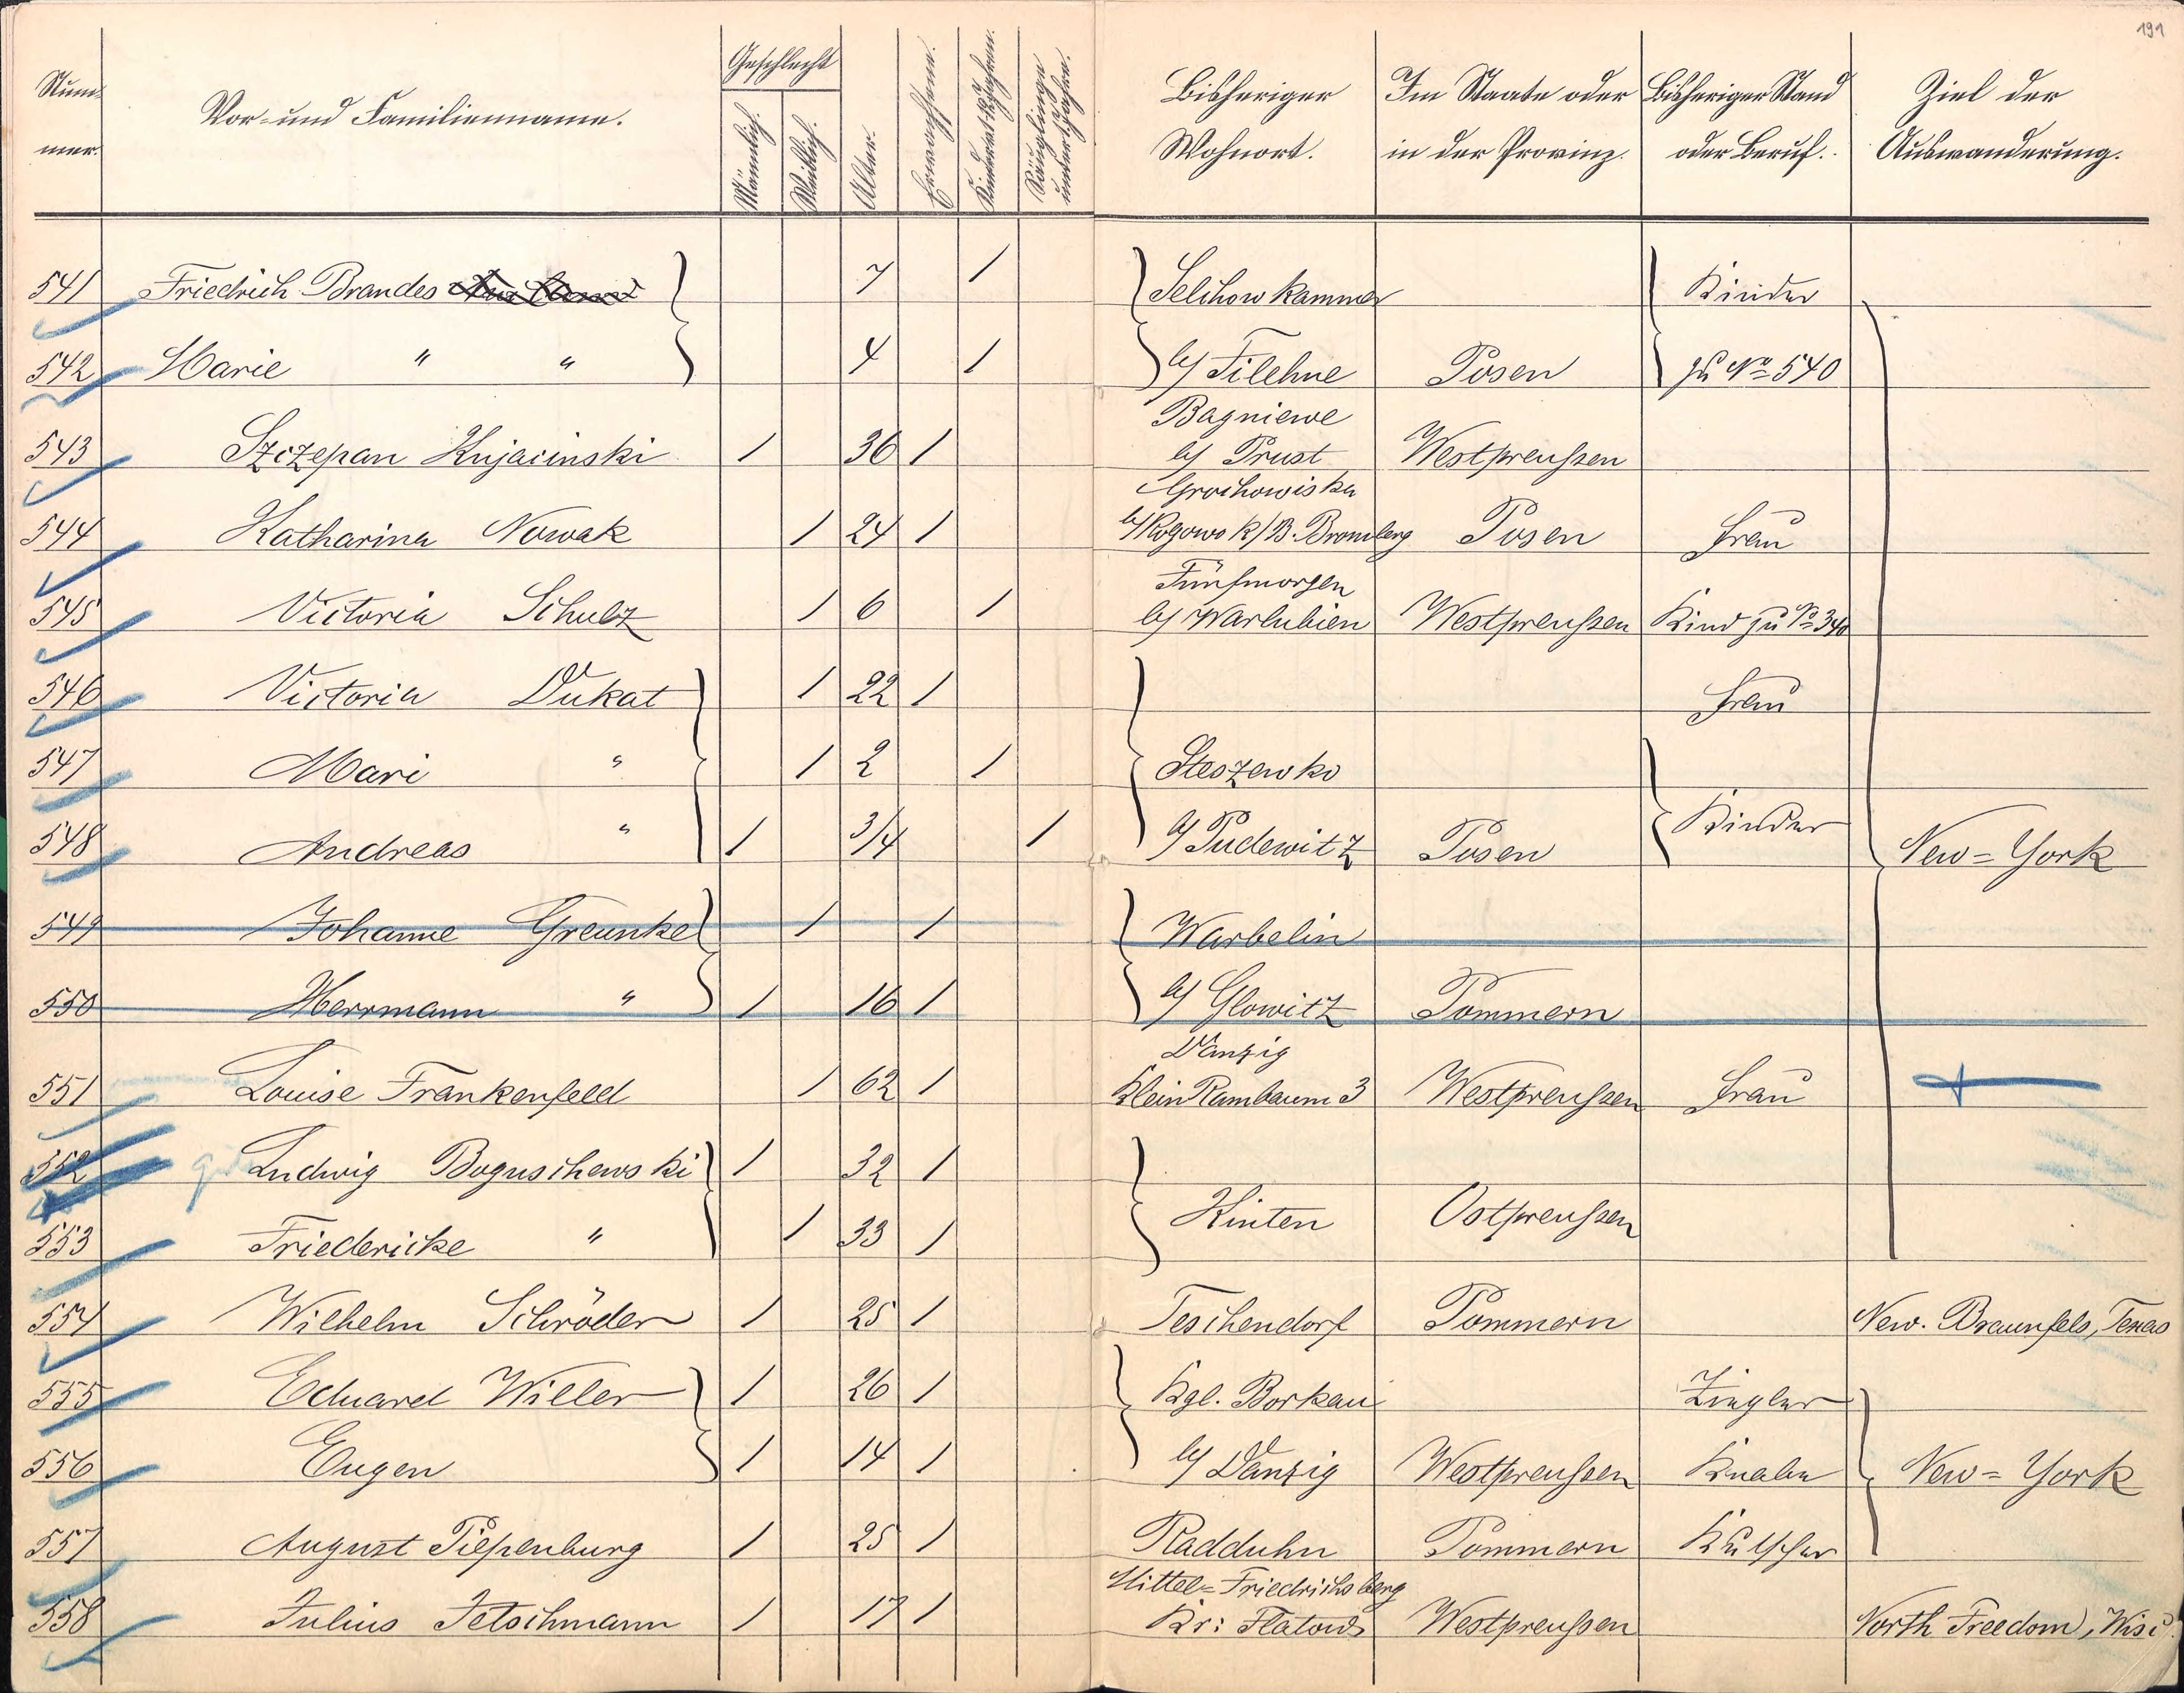 191
Num-
mer.
Vor- und Familienname.
Geschlecht
Männlich.
Weiblich.
Alter.
Erwachsene.
Säuglinge
unter 1 Jahre.
Bisheriger
Wohnort.
Im Staate oder
in der Provinz.
Bisheriger Stand
oder Beruf.
Ziel der
Auswanderung.
541 Friedrich Brandes 7 / Selchow kammer Kinder
542 Marie " " 4 / b/ Filehne Posen zu No 540
Bagniewe
543 Szczepan Kujacinski / 36 / b/ Prust Westpreußen
Grochowiska
544 Katharina Nowak / 24 / b/ Rogowo R/B. Bromberg Posen Frau
Fünfmorgen
545 Victoria Schulz / 6 / b/ Warlubien Westpreußen Kind zu No 340
546 Victoria Dukat / 22 / Frau
547 Mari " / 2 / Steszewko
548 Andreas " / 3/4 / b/ Pudewitz Posen Kinder New=York
549 Johanne Greunke / / Warbelin
550 Herrmann " / 16 / b/ Glowitz Pommern
Danzig
551 Louise Frankenfeld / 62 / Klein Rambaum 3 Westpreußen Frau
552 Ludwig Boguschewski / 32 /
553 Friedericke " / 33 / Kinten Ostpreußen
554 Wilhelm Schröder / 25 / Teschendorf Pommern New. Braunfels, Texas
555 Eduard Willer / 26 / Kgl. Borkau Ziegler
556 Eugen / 14 / b/ Danzig Westpreußen Knabe New=York
557 August Piepenburg / 25 / Radduhn Pommern Kutscher
Mittel=Friedrichsberg
558 Julius Jetschmann / 17 / Kr: Flatow Westpreußen North Freedom, Wisc.